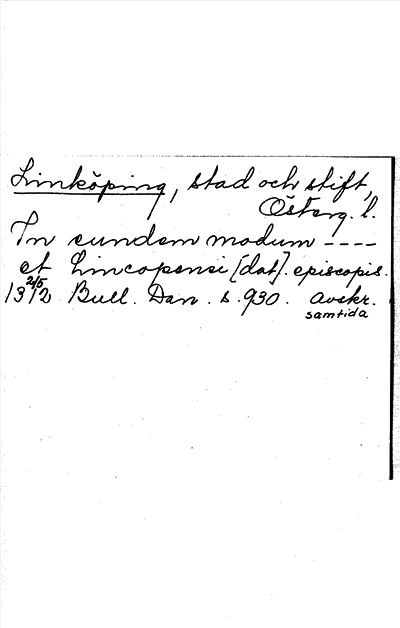 Linköping, stad och stift,
Österg. l.
In eundem modum ----
et Lincopensi [dat]. episcopis.
13 2/5 12 Bull. Dan. s. 930. Avskr.
samtida